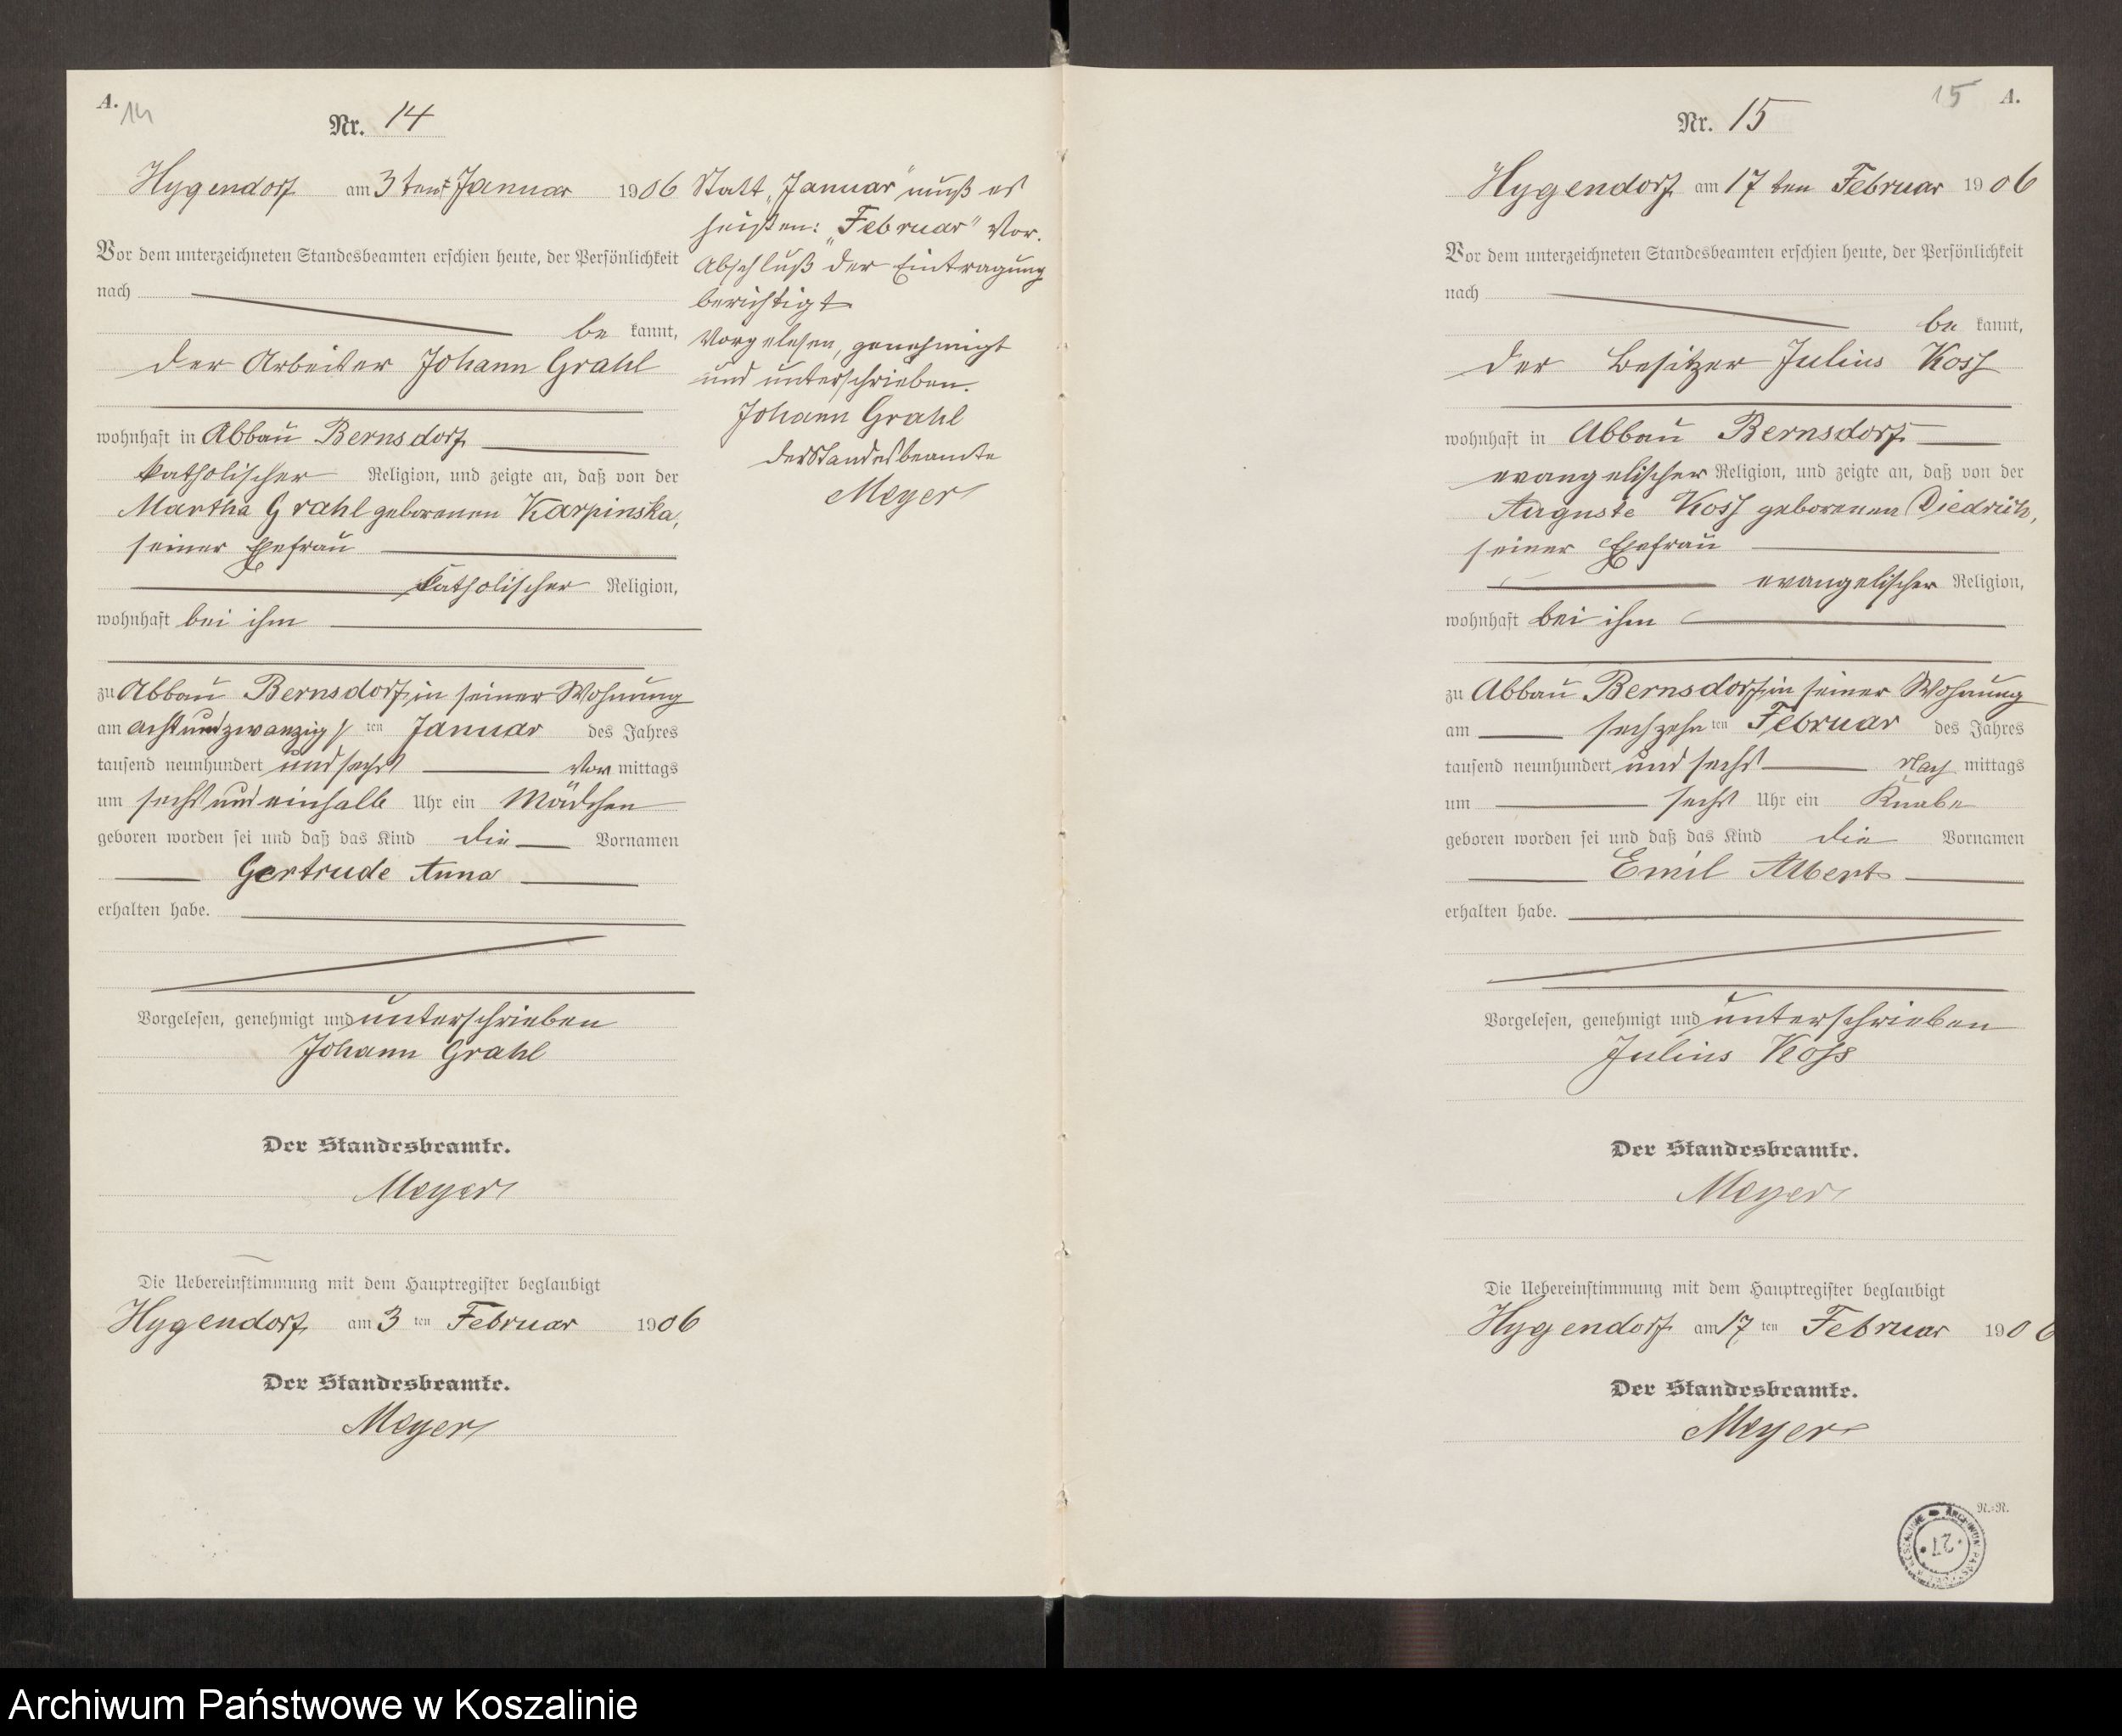 A.
14
Nr. 14
Hygendorf am 3 ten Januar 1906
Vor dem unterzeichneten Standesbeamten erschien heute, der Persönlichkeit
nach
be kannt,
der Arbeiter Johann Grahl
wohnhaft in Abbau Bernsdorf
katholischer Religion, und zeigte an, daß von der
Martha Grahl geborenen Karpinska,
seiner Ehefrau
katholischer Religion,
wohnhaft bei ihm
zu Abbau Bernsdorf, in seiner Wohnung
am achtundzwanzigsten Januar des Jahres
tausend neunhundert und sechs Vor mittags
um sechs und einhalb Uhr ein Mädchen
geboren worden sei und daß das Kind die Vornamen
Gertrude Anna
erhalten habe.
Vorgelesen, genehmigt und unterschrieben
Johann Grahl
Der Standesbeamte.
Meyer
Die Uebereinstimmung mit dem Hauptregister beglaubigt
Hygendorf, am 3 ten Februar 1906
Der Standesbeamte.
Meyer
Statt „Januar" muß es
heißen: „Februar" Vor.
Abschluß der Eintragung
berichtigt
Vorgelesen, genehmigt
und unterschrieben.
Johann Grahl
Der Standesbeamte
Meyer
15 A.
Nr. 15
Hygendorf am 17 ten Februar 1906
Vor dem unterzeichneten Standesbeamten erschien heute, der Persönlichkeit
nach
be kannt,
der Besitzer Julius Koss
wohnhaft in Abbau Bernsdorf
evangelischer Religion, und zeigte an, daß von der
Auguste Koss geborenen Diedrich,
seiner Ehefrau
evangelischer Religion,
wohnhaft bei ihm
zu Abbau Bernsdorf, in seiner Wohnung
am sechzehn ten Februar des Jahres
tausend neunhundert und sechs Nach mittags
um sechs Uhr ein Knabe
geboren worden sei und daß das Kind die Vornamen
Emil Albert
erhalten habe.
Vorgelesen, genehmigt und unterschrieben
Julius Koss
Der Standesbeamte.
Meyer
Die Uebereinstimmung mit dem Hauptregister beglaubigt
Hygendorf am 17 ten Februar 1906
Der Standesbeamte.
Meyer
N.-N.
27
Archiwum Państwowe w Koszalinie